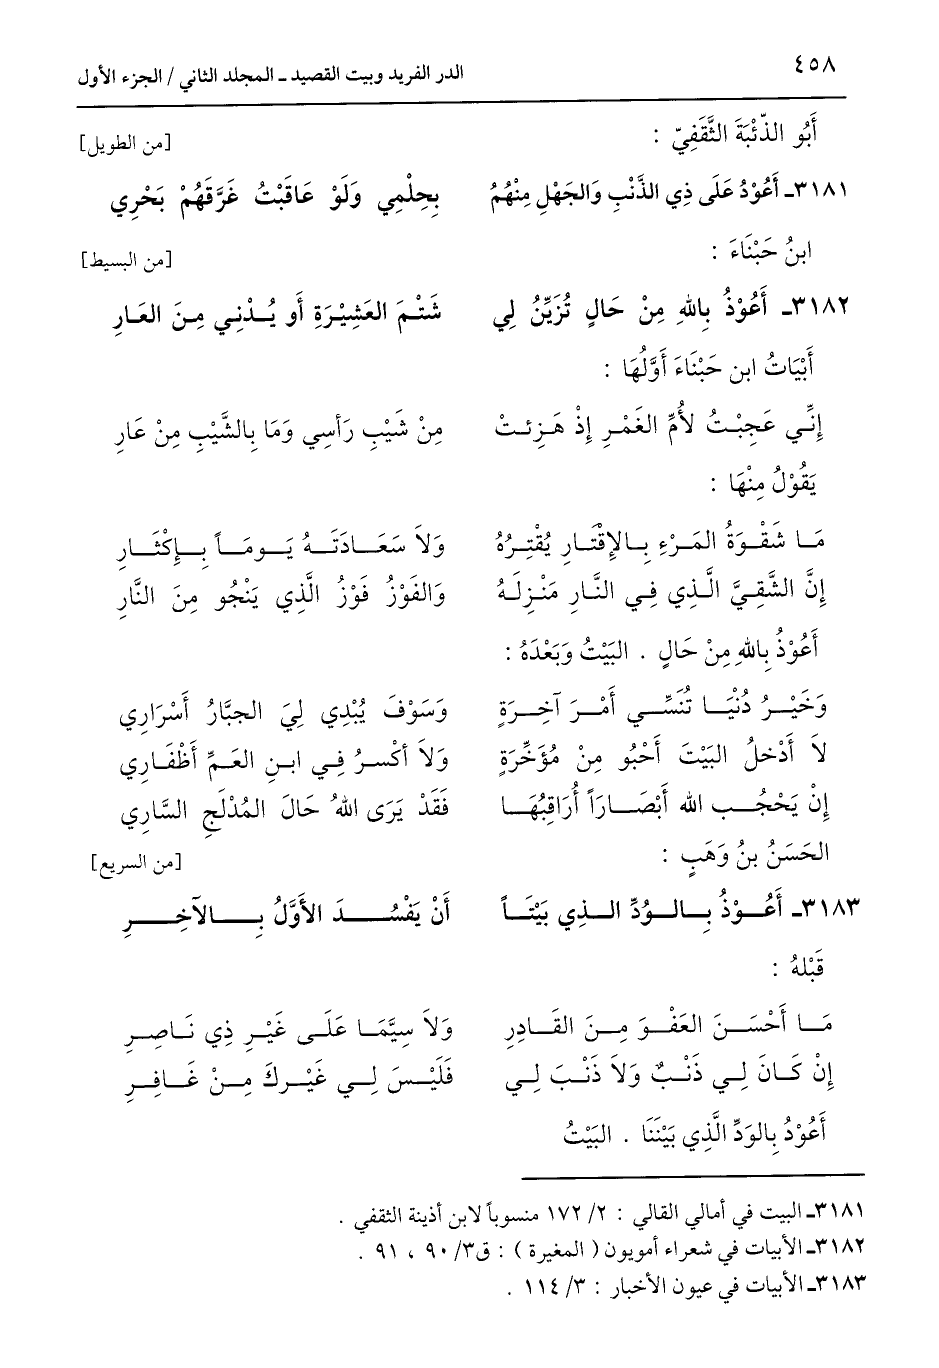 ٤٥٨ الدر الفريد وبيت القصيد ـ المجلد الثاني / الجزء الأول
أَبُو الذِّئْبَةَ الثَّقَفِيّ : [من الطويل]
٣١٨١ـ أَعُوْدُ عَلَى ذِي الذَّنْبِ وَالجَهْلِ مِنْهُمُ بِحِلْمِي وَلَوْ عَاقَبْتُ غَرَّقَهُمْ بَحْرِي
ابنُ حَبْنَاءَ : [من البسيط]
٣١٨٢ـ أَعُوْذُ بِاللهِ مِنْ حَالٍ تُزَيِّنُ لِي شَتْمَ العَشِيْرَةِ أَو يُدْنِي مِنَ العَارِ
أَبْيَاتُ ابن حَبْنَاءَ أَوَّلُهَا :
إِنِّي عَجِبْتُ لأُمِّ الغَمْرِ إِذْ هَزِئتْ مِنْ شَيْبِ رَأسِي وَمَا بِالشَّيْبِ مِنْ عَارِ
يَقُوْلُ مِنْهَا :
مَا شَقْوَةُ المَرْءِ بِالإِقْتَارِ يُقْتِرُهُ وَلاَ سَعَادَتَهُ يَومَاً بِإِكْثَارِ
إِنَّ الشَّقِيَّ الَّذِي فِي النَّارِ مَنْزِلَهُ وَالفَوْزُ فَوْزُ الَّذِي يَنْجُو مِنَ النَّارِ
أَعُوْذُ بِاللهِ مِنْ حَالٍ . البَيْتُ وَبَعْدَهُ :
وَخَيْرُ دُنْيَا تُنَسِّي أَمْرَ آخِرَةٍ وَسَوْفَ يُبْدِي لِيَ الجبَّارُ أَسْرَارِي
لاَ أَدْخلُ البَيْتَ أَحْبُو مِنْ مُؤَخَّرَةٍ وَلاَ أكْسرُ فِي ابنِ العَمِّ أَظْفَارِي
إِنْ يَحْجُبِ الله أَبْصَارَاً أُرَاقِبُهَا فَقَدْ يَرَى اللهُ حَالَ المُدْلَجِ السَّارِي
الحَسَنُ بنُ وَهَبٍ : [من السريع]
٣١٨٣ـ أَعُوْذُ بِالوُدِّ الذِي بَيْنَا أَنْ يَفْسُدَ الأَوَّلُ بِالآخِرِ
قَبْلهُ :
مَا أَحْسَنَ العَفْوَ مِنَ القَادِرِ وَلاَ سِيَّمَا عَلَى غَيْرِ ذِي نَاصِرِ
إِنْ كَانَ لِي ذَنْبٌ وَلاَ ذَنْبَ لِي فَلَيْسَ لِي غَيْركَ مِنْ غَافِرِ
أَعُوْدُ بِالوَدِّ الَّذِي بَيْنَنَا . البَيْتُ
٣١٨١ـ البيت في أمالي القالي : ٢/ ١٧٢ منسوباً لابن أذينة الثقفي .
٣١٨٢ـ الأبيات في شعراء أمويون ( المغيرة ) : ق٣/ ٩٠ ، ٩١ .
٣١٨٣ـ الأبيات في عيون الأخبار : ٣/ ١١٤ .